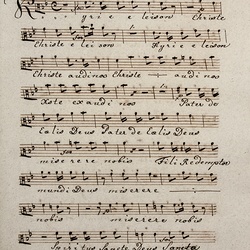 Kyri e e leison Christe
Christe e lei son Kyri e e leison
Christe audi nos Christe audi nos
Xste ex audi nos Pater de
Cælis Deus Pater de Cælis Deus
mise rere nobis Fili Redemptor
mundi Deus miserere
nobis miserere nobis
Spiritus Sancte Deus Sancta